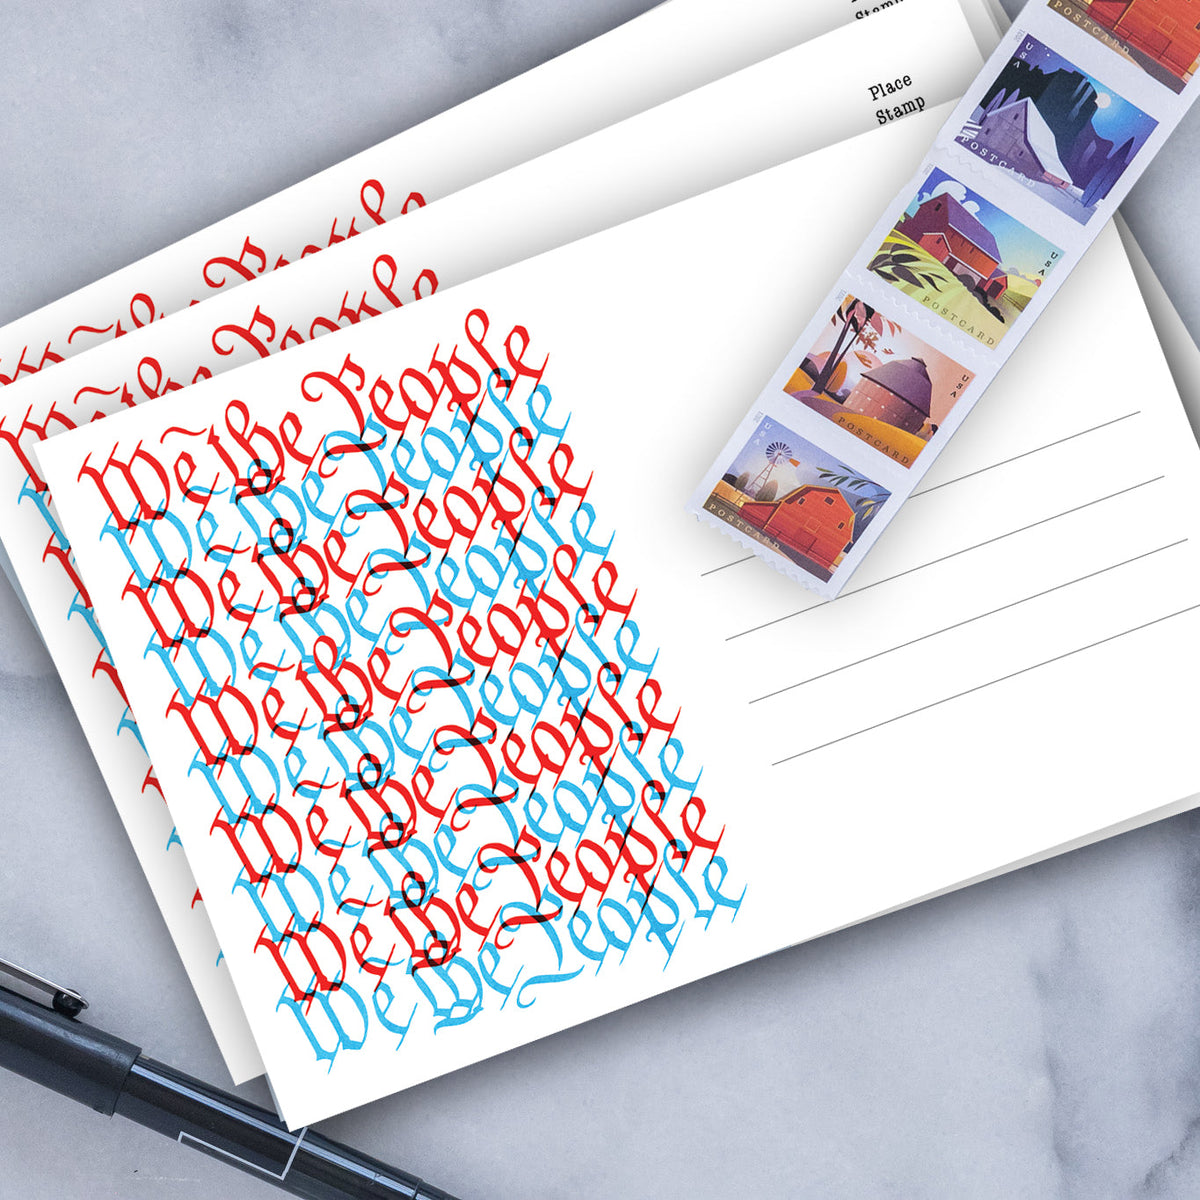 Place
Stamp
We the People
We the People
We the People
We the People
We the People
We the People
We the People
We the People
We the People
We the People
We the People
We the People
POSTCARD
USA
POSTCARD
USA
POSTCARD
USA
POSTCARD
USA
POSTCARD